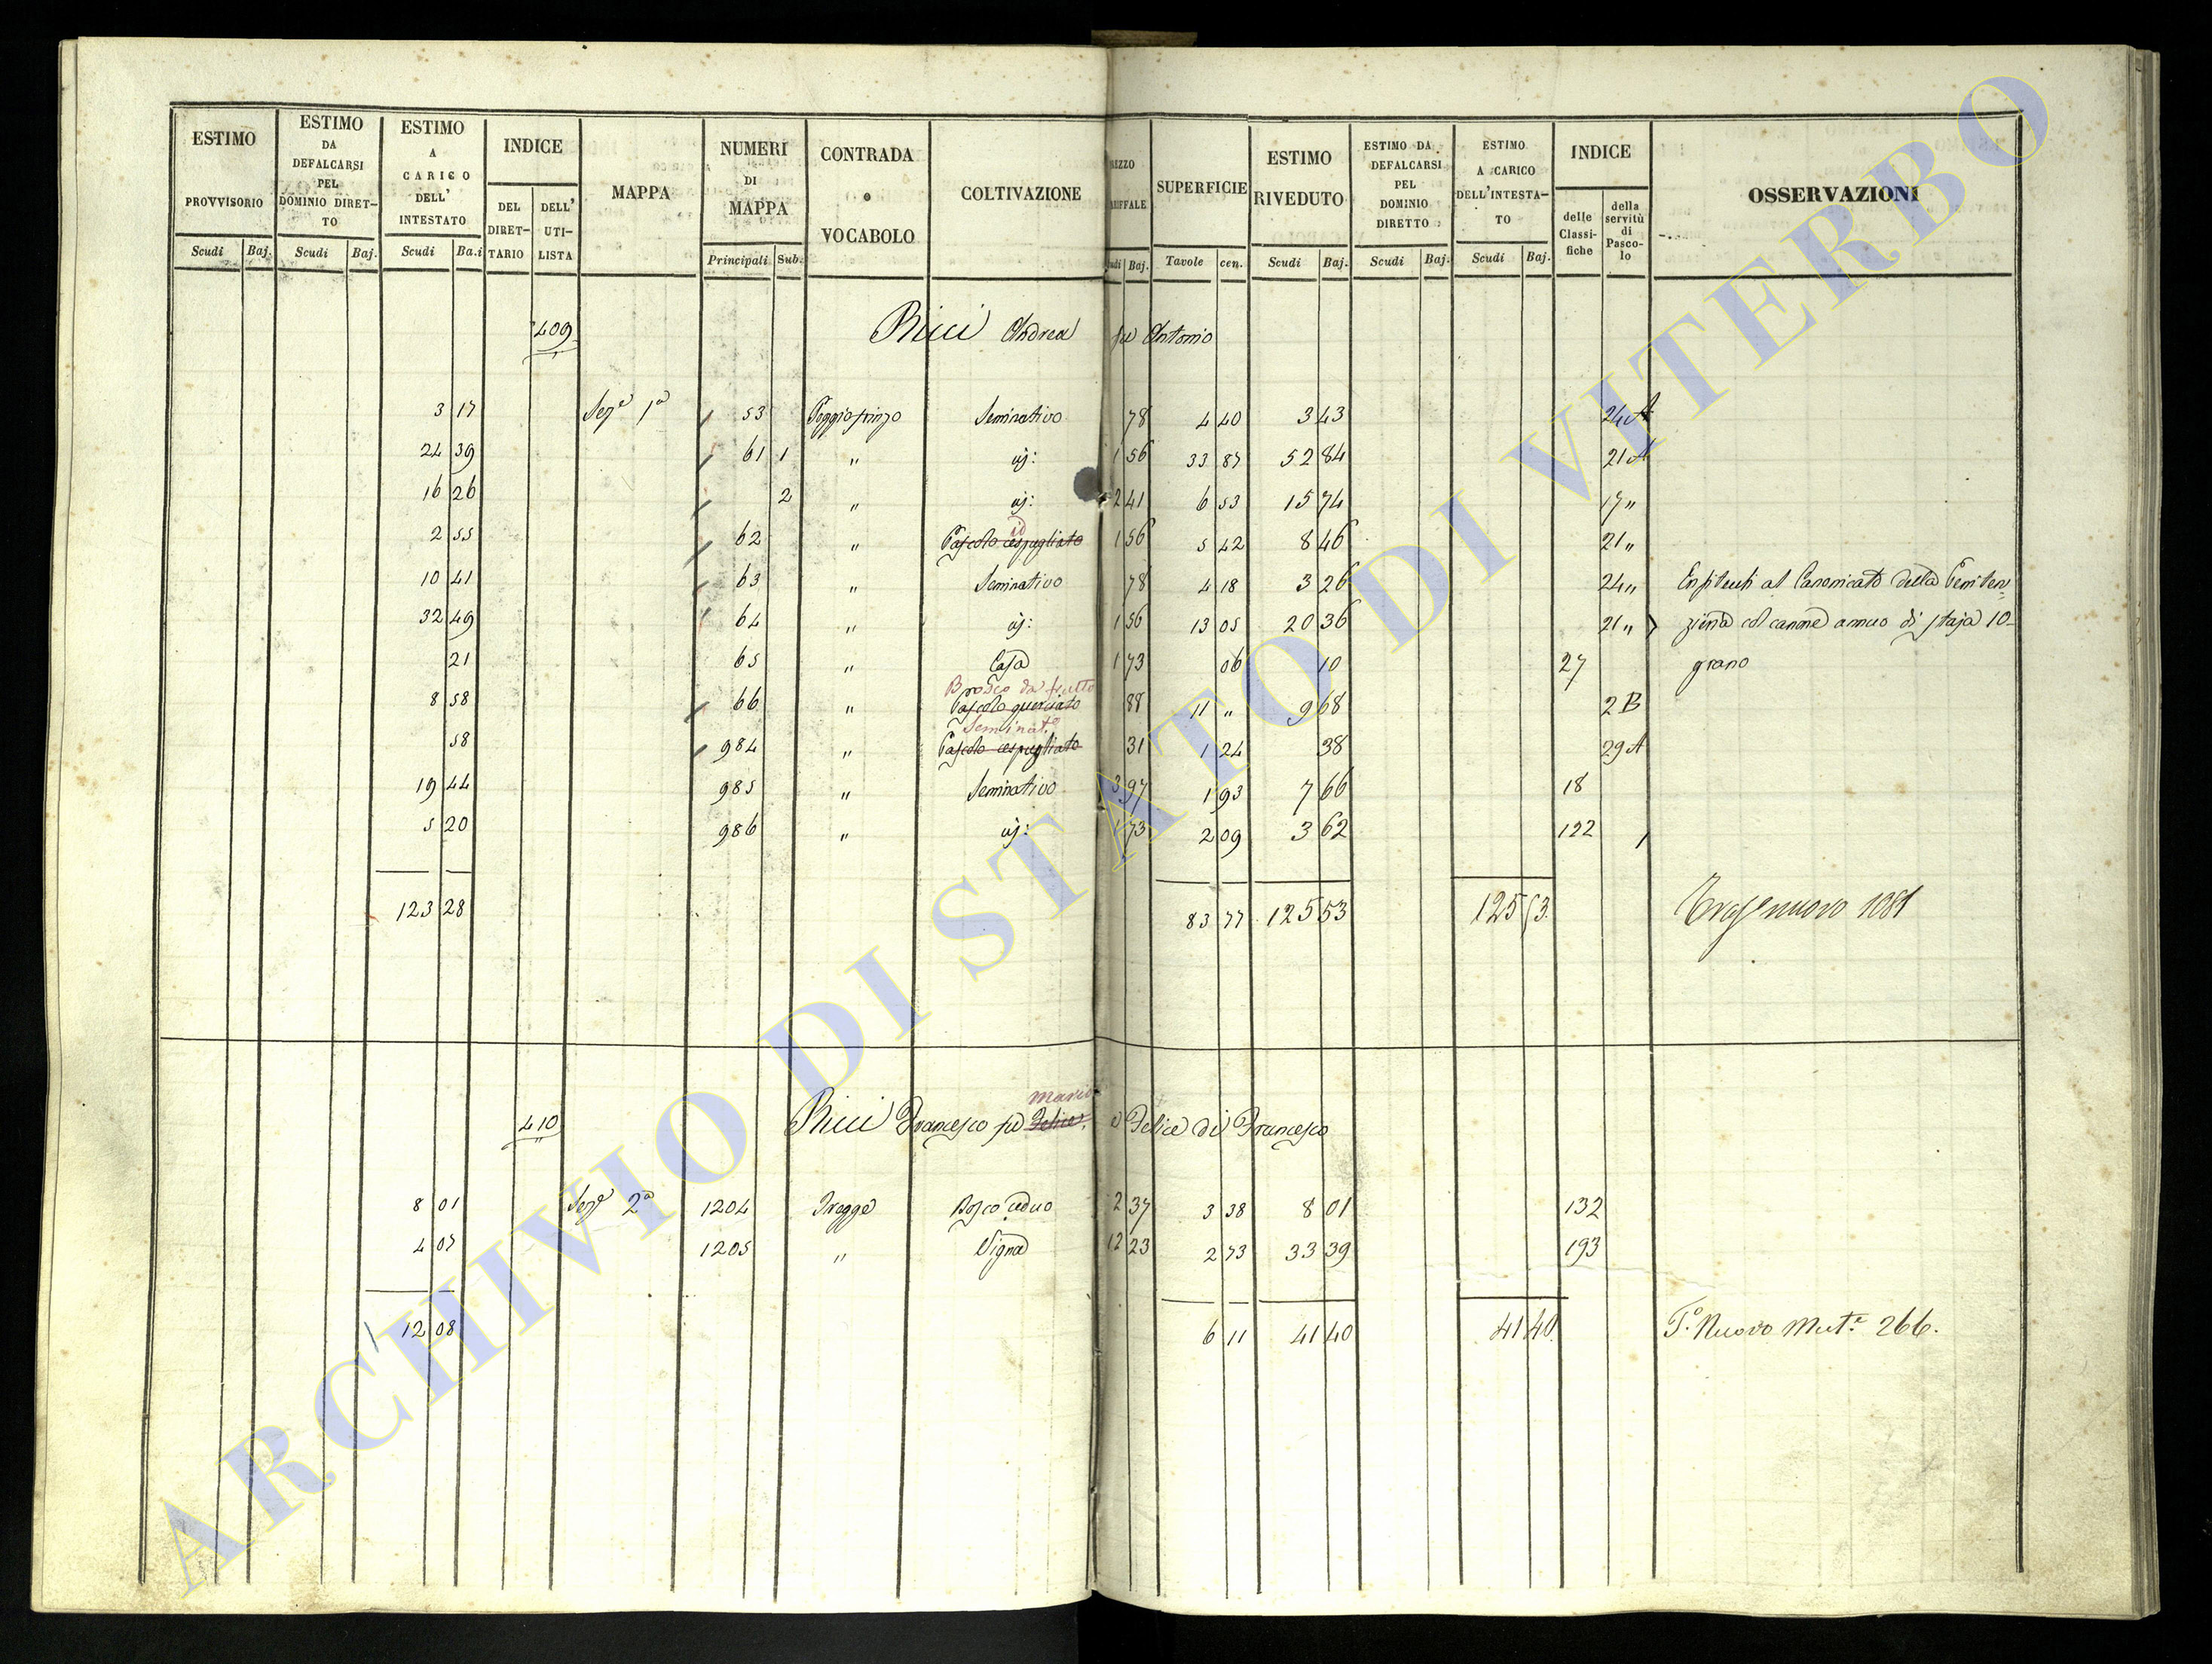 ESTIMO PROVVISORIO Scudi Baj.
ESTIMO DA DEFALCARSI PEL DOMINIO DIRETTO Scudi Baj.
ESTIMO A CARICO DELL' INTESTATO Scudi Baj.
INDICE DEL DIRETTARIO DELL' UTILISTA
MAPPA
NUMERI DI MAPPA Principali Sub.
CONTRADA o VOCABOLO
COLTIVAZIONE
SUPERFICIE Tavole cen.
ESTIMO RIVEDUTO Scudi Baj.
ESTIMO DA DEFALCARSI PEL DOMINIO DIRETTO Scudi Baj.
ESTIMO A CARICO DELL'INTESTATO Scudi Baj.
INDICE delle Classifiche della servitù di Pascolo
OSSERVAZIONI
409 Ricci Andrea fu Antonio
3 17 Sez.e 1a 53 Seminativo 78 4 40 3 43 24 A
24 39 61 1 " id: 1 56 33 87 52 84 21 A
16 26 2 " id: 2 41 6 53 15 74 17 "
id
2 55 62 " Pascolo cespugliato 1 56 5 42 8 46 21 "
10 41 63 " Seminativo 78 4 18 3 26 24 " Enfiteuti al Canonicato della Peniten=
32 49 64 " id: 1 56 13 05 20 36 21 " zieria col canone annuo di staja 10
21 65 " Casa 1 73 06 10 27 grano
Bosco da frutto
8 58 66 " Pascolo querciato 88 11 " 9 68 2 B
Seminat.o
58 984 " Pascolo cespugliato 31 1 24 38 29 A
19 44 985 " Seminativo 3 97 1 93 7 66 18
5 20 986 " id: 1 73 2 09 3 62 122
123 28 83 77 125 53 125 53 nuovo 1081
Mario
410 Ricci Francesco fu Felice, e Felice di Francesco
8 01 Sez.e 2a 1204 Bosco ceduo 2 37 3 38 8 01 132
4 07 1205 " Vigna 12 23 2 73 33 39 193
12 08 6 11 41 40 41 40 T.o Nuovo Mut.e 266.
ARCHIVIO DI STATO DI VITERBO